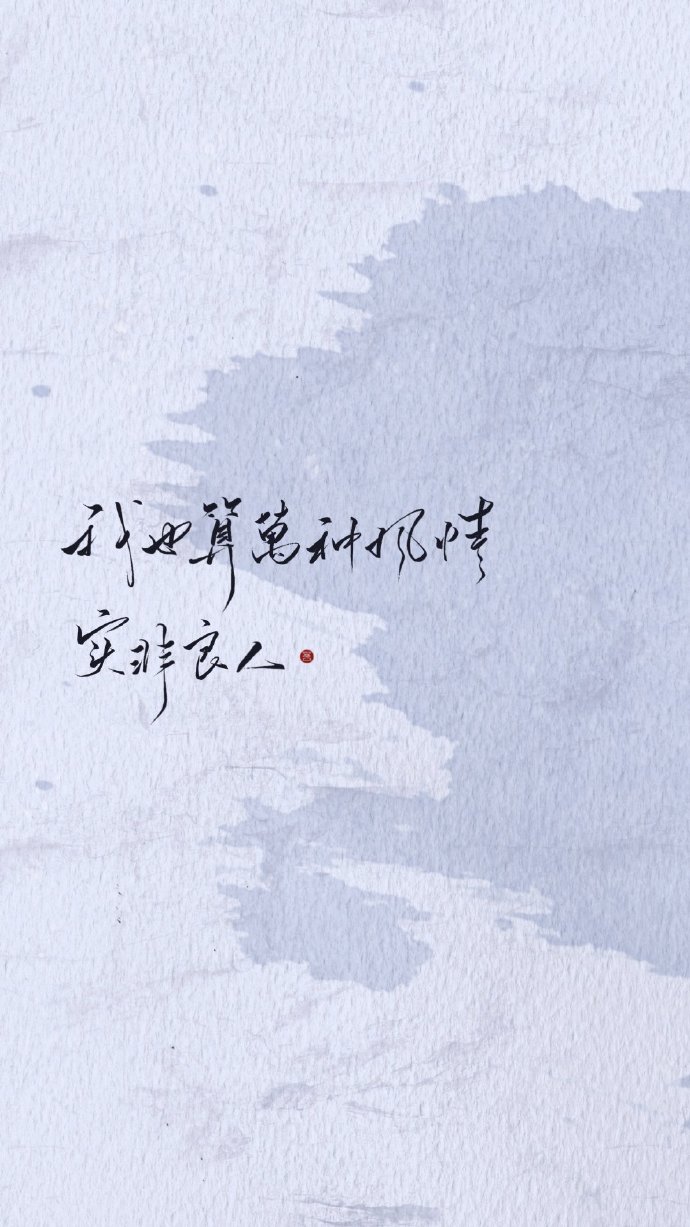 我也算萬种风情
实非良人